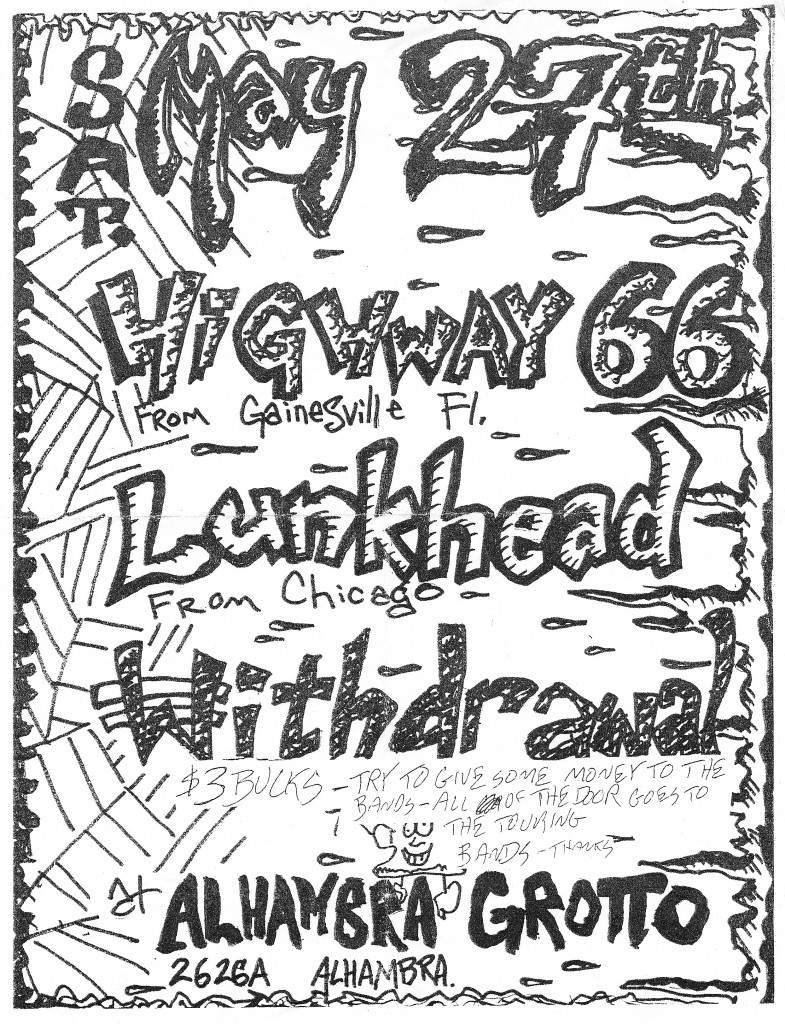 SAT. May 27th
HiGHWAY 66
FROM Gainesville Fl.
Lunkhead
FROM Chicago
Withdrawal
$3 BUCKS - TRY TO GIVE SOME MONEY TO THE
BANDS - ALL OF THE DOOR GOES TO
THE TOURING
BANDS - THANKS
at ALHAMBRA GROTTO
2626A ALHAMBRA.